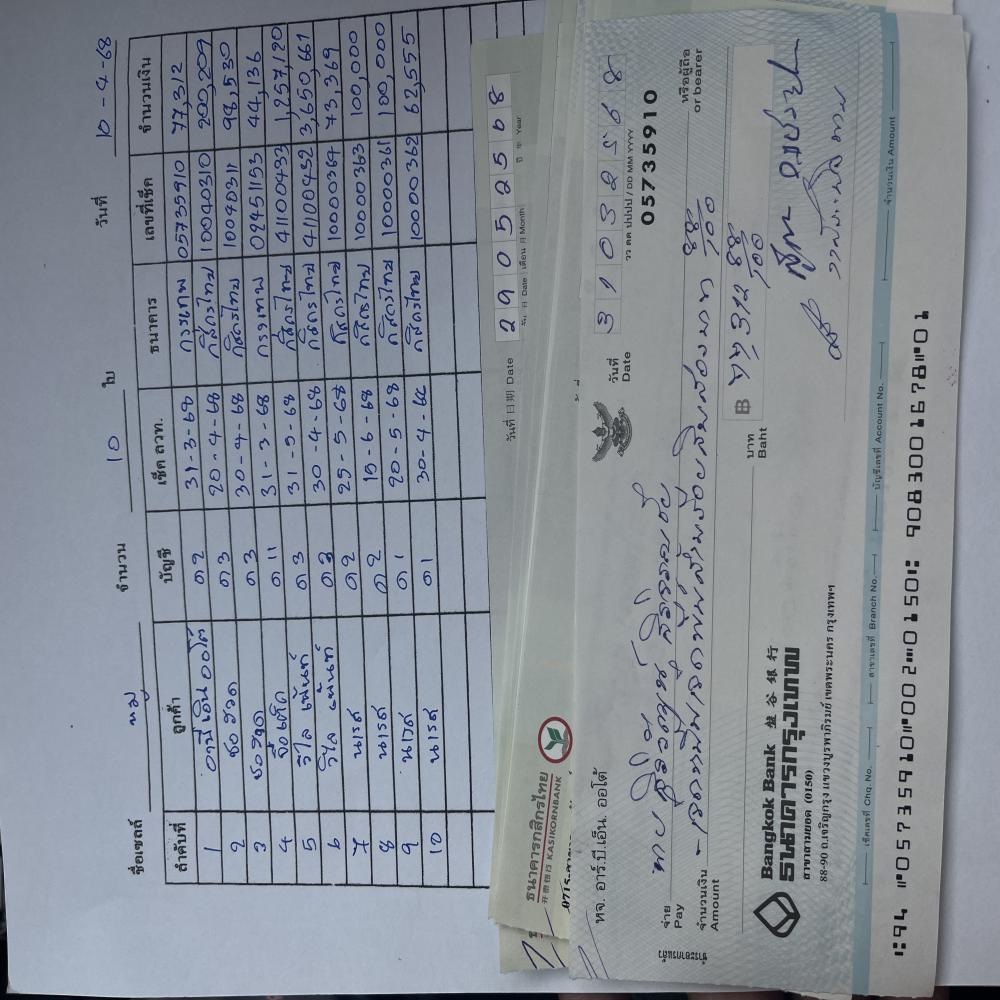 ชื่อเซลล์ หมู จำนวน 10 ใบ วันที่ 10-4-68
ลำดับที่ ลูกค้า บัญชี เช็ค ลวท. ธนาคาร เลขที่เช็ค จำนวนเงิน
1 อาบีเอ็นออโต้ 02 31-3-68 กรุงเทพ 05735910 77,312
2 03 20-4-68 กสิกรไทย 10040310 200,209
3 03 30-4-68 กสิกรไทย 98,530
4 011 31-3-68 กรุงเทพ 02451133 44,136
5 วิไล เพ้นท์ 03 กสิกรไทย 41100433 1,257,120
6 วิไล เพ้นท์ 30-4-68 กสิกรไทย 41100432 3,650,661
7 นเรศ 02 25-5-68 กสิกรไทย 10000364 73,369
8 นเรศ 02 15-6-68 กสิกรไทย 10000363 100,000
9 นเรศ 01 20-5-68 กสิกรไทย 10000361 100,000
10 นเรศ 01 30-4-68 กสิกรไทย 10000362 62,555
ธนาคารกสิกรไทย
开泰银行 KASIKORNBANK
วันที่ 日期 Date 29052568
วัน 日 Date เดือน 月 Month ปี 年 Year
หจ. อาร์.บี.เอ็น. ออโต้
วันที่ 31032568
Date วว ดด ปปปป / DD MM YYYY
05735910
จ่าย
Pay
หรือผู้ถือ
or bearer
จำนวนเงิน
Amount
บาท
Baht
฿ 77,312 88/100
Bangkok Bank 盤谷銀行
ธนาคารกรุงเทพ
สาขาสามยอด (0150)
88-90 ถ.เจริญกรุง แขวงบูรพาภิรมย์ เขตพระนคร กรุงเทพฯ
เช็คเลขที่ Chq. No. สาขาเลขที่ Branch No. บัญชีเลขที่ Account No. จำนวนเงิน Amount
05735910 002 0150 9083001678 01